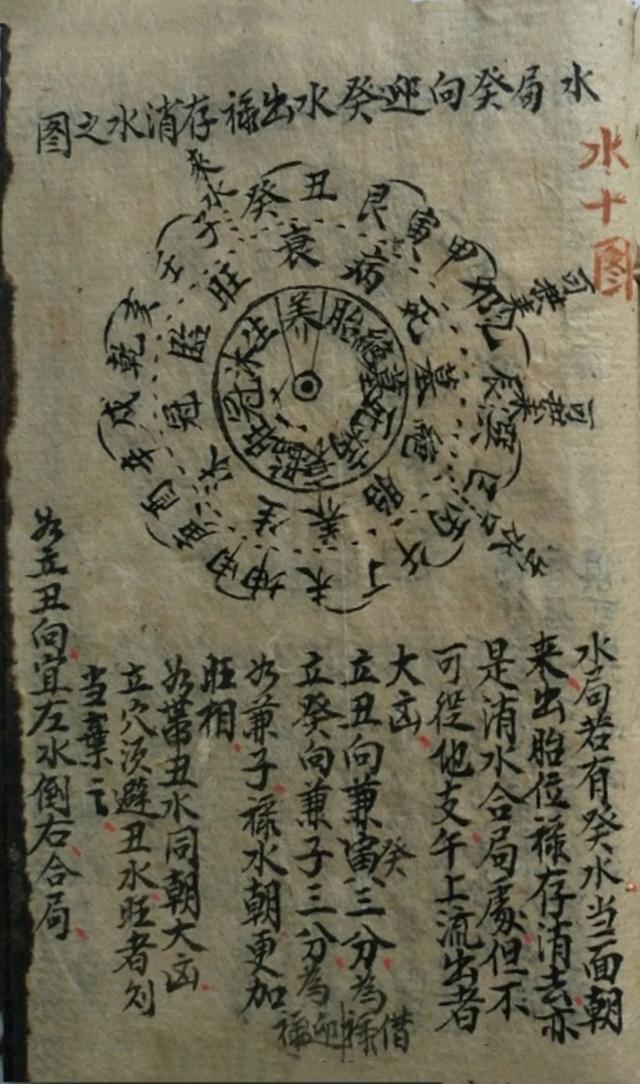 水局癸向迎癸水出祿存消水之图
水十图
来水
癸丑
艮寅
甲卯乙
辰巽
巳丙
丁
未坤
申
酉辛
戌乾
亥壬
子
衰病死墓絕胎养生沐冠臨旺
养胎絕墓死病衰旺臨冠沐生
水局若有癸水当面朝
来出胎位祿存消去亦
是消水合局處但不
可從他支午上流出者
大凶
立丑向兼寅三分為借祿
癸
立癸向兼子三分為迎祿
如兼子祿水朝更加
旺相
如带丑水同朝大凶
立穴須避丑水旺者勿
当棄之
如立丑向宜左水倒右合局